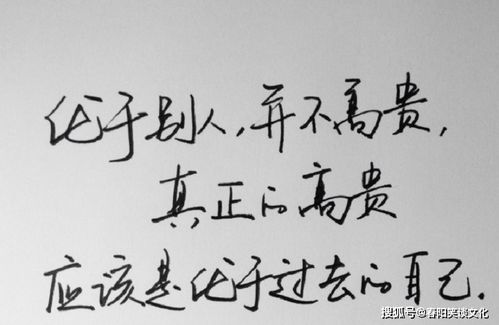 优于别人,并不高贵,
真正的高贵
应该是优于过去的自己.
搜狐号@春阳笑谈文化